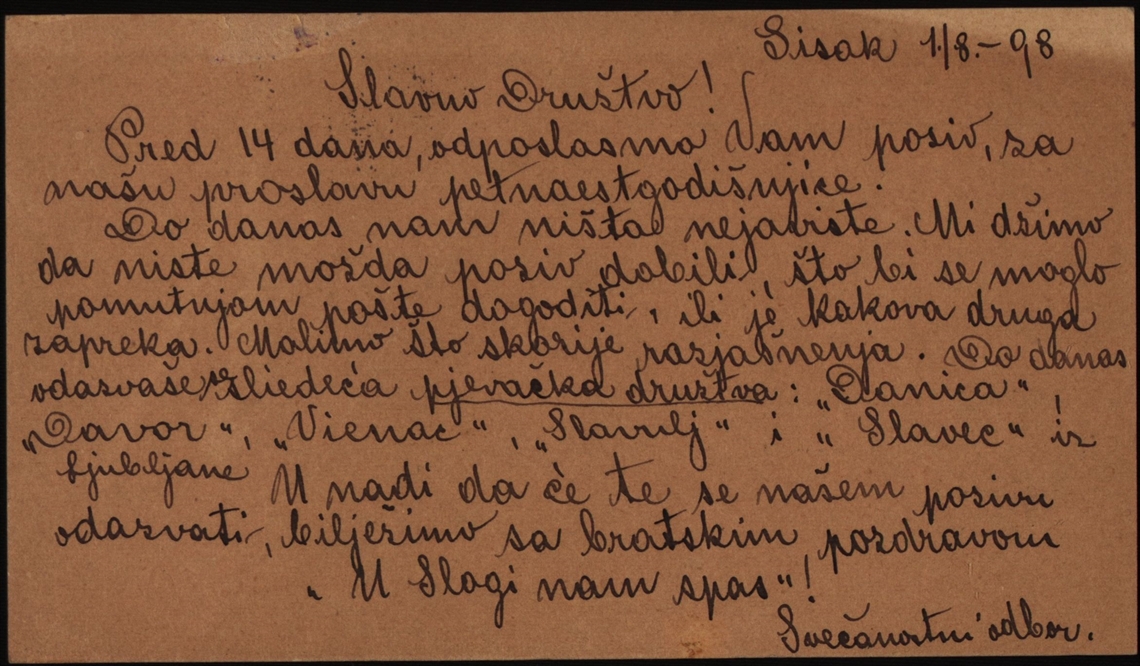 Sisak 1/8.-98
Slavno Društvo!
Pred 14 dana, odposlasmo Vam poziv, za
našu proslavu petnaestgodišnjice.
Do danas nam ništa nejaviste. Mi džimo
da niste možda poziv dobili, što bi se moglo
pomutnjom pošte dogoditi, ili je kakova druga
zapreka. Molimo što skorije razjašnenja. Do danas
odazvaše se sliedeća pjevačka društva: „Danica“,
„Davor“, „Vienac“, „Slavulj“ i „Slavec“ iz
Ljubljane
U nadi da će te se našem pozivu
odazvati, bilježimo sa bratskim pozdravom
„U Slogi nam spas“!
Svečanostni odbor.